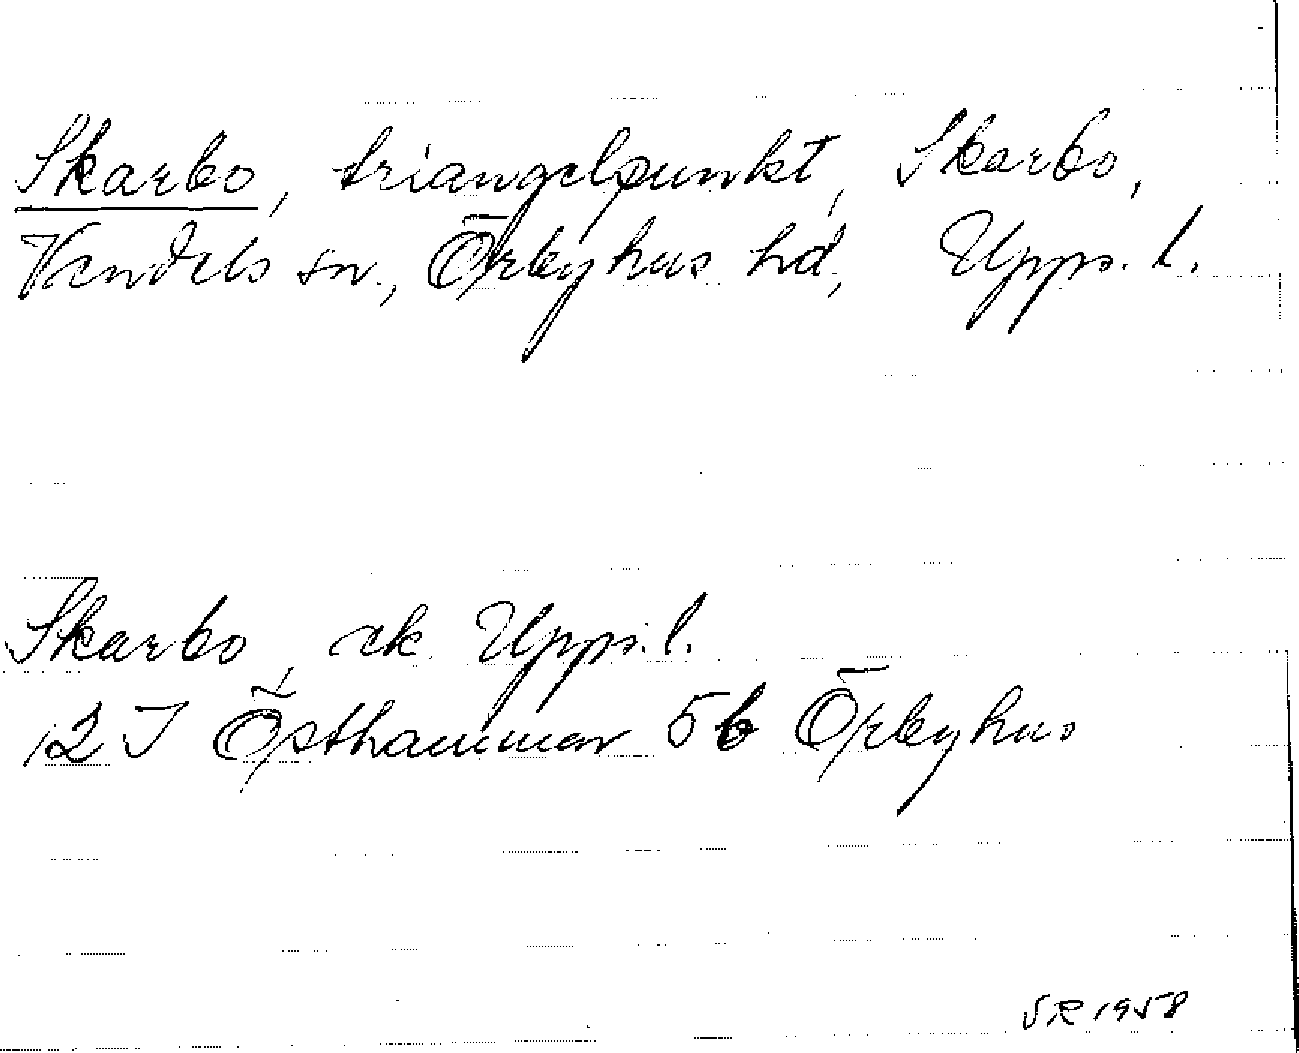 Skarbo, triangelpunkt, Skarbo,
Vendels sn., Örbyhus hd, Upps. l.
Skarbo, ek. Upps. l.
12 I Östhammar 5 b Örbyhus
SR 1958